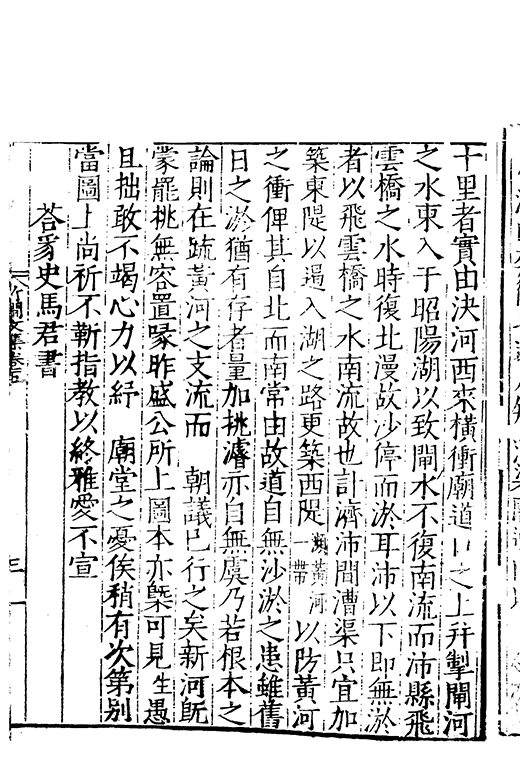 十里者實由決河西來橫衝廟道口之上幷掣閘河
之水東入于昭陽湖以致閘水不復南流而沛縣飛
雲橋之水時復北漫故沙停而淤耳沛以下即無淤
者以飛雲橋之水南流故也計濟沛間漕渠只宜加
築東隄以遏入湖之路更築西隄瀕黃河一帶以防黃河
之衝俾其自北而南常由故道自無沙淤之患雖舊
日之淤猶有存者量加挑濬亦自無虞乃若根本之
論則在疏黃河之支流而 朝議已行之矣新河旣
蒙罷挑無容置喙昨盛公所上圖本亦槩可見生愚
且拙敢不竭心力以紓 廟堂之憂俟稍有次第別
當圖上尚祈不靳指教以終雅愛不宣
荅豸史馬君書
三